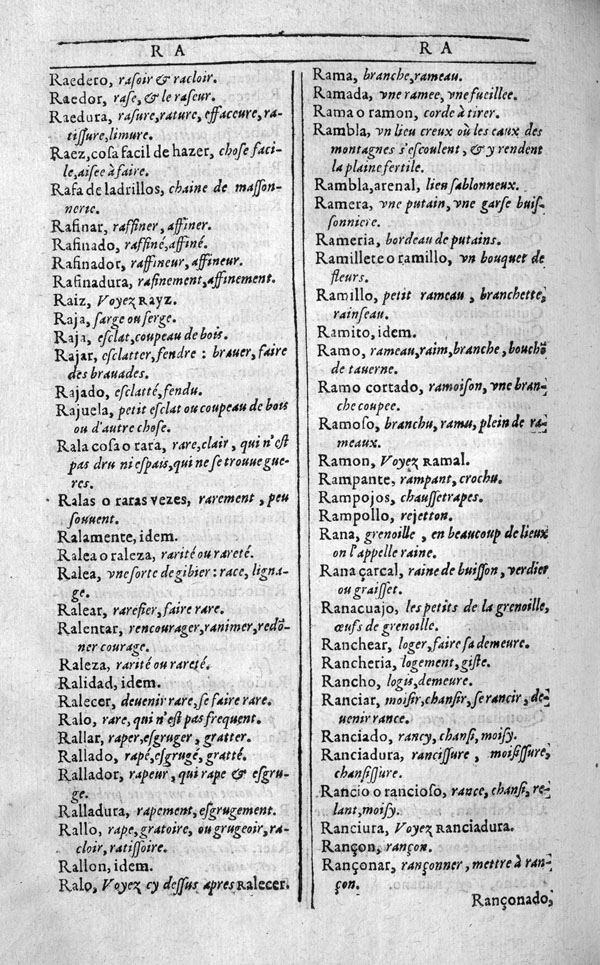 R A
Raedero, rasoir & racloir.
Raedor, rase, & le raseur.
Raedura, rasure, rature, effaceure, ra-
tissure, limure.
Raez, cosa facil de hazer, chose faci-
le, aisee à faire.
Rafa de ladrillos, chaine de masson-
nerie.
Rafinar, raffiner, affiner.
Rafinado, raffiné, affiné.
Rafinador, raffineur, affineur.
Rafinadura, rafinement, affinement.
Raiz, Voyez Rayz.
Raja, sarge ou serge.
Raja, esclat, coupeau de bois.
Rajar, esclatter, fendre : brauer, faire
des brauades.
Rajado, esclatté, fendu.
Rajuela, petit esclat ou coupeau de bois
ou d'autre chose.
Rala cosa o rara, rare, clair, qui n'est
pas dru ni espais, qui ne se trouue gue-
res.
Ralas o raras vezes, rarement, peu
souuent.
Ralamente, idem.
Ralea o raleza, rarité ou rareté.
Ralea, vne sorte de gibier : race, ligna-
ge.
Ralear, rarefier, faire rare.
Ralentar, rencourager, ranimer, redō-
ner courage.
Raleza, rarité ou rareté.
Ralidad, idem.
Ralecer, deuenir rare, se faire rare.
Ralo, rare, qui n'est pas frequent.
Rallar, raper, esgruger, gratter.
Rallado, rapé, esgrugé, gratté.
Rallador, rapeur, qui rape & esgru-
ge.
Ralladura, rapement, esgrugement.
Rallo, rape, gratoire, ou grugeoir, ra-
cloir, ratissoire.
Rallon, idem.
Ralo, Voyez cy dessus apres Ralecer.
R A
Rama, branche, rameau.
Ramada, vne ramee, vne fueillee.
Rama o ramon, corde à tirer.
Rambla, vn lieu creux où les eaux des
montagnes s'escoulent, & y rendent
la plaine fertile.
Rambla, arenal, lieu sablonneux.
Ramera, vne putain, vne garse buis-
sonniere.
Rameria, bordeau de putains.
Ramillete o ramillo, vn bouquet de
fleurs.
Ramillo, petit rameau, branchette,
rainseau.
Ramito, idem.
Ramo, rameau, raim, branche, bouchō
de tauerne.
Ramo cortado, ramoison, vne bran-
che coupee.
Ramoso, branchu, ramu, plein de ra-
meaux.
Ramon, Voyez Ramal.
Rampante, rampant, crochu.
Rampojos, chaussetrapes.
Rampollo, rejetton.
Rana, grenoille, en beaucoup de lieux
on l'appelle raine.
Rana çarcal, raine de buisson, verdier
ou graisset.
Ranacuajo, les petits de la grenoille,
œufs de grenoille.
Ranchear, loger, faire sa demeure.
Rancheria, logement, giste.
Rancho, logis, demeure.
Ranciar, moisir, chansir, se rancir, de-
uenir rance.
Ranciado, rancy, chansi, moisy.
Ranciadura, rancissure, moisissure,
chansissure.
Rancio o rancioso, rance, chansi, re-
lant, moisy.
Ranciura, Voyez Ranciadura.
Rançon, rançon.
Rançonar, rançonner, mettre à ran-
çon.
Rançonado,